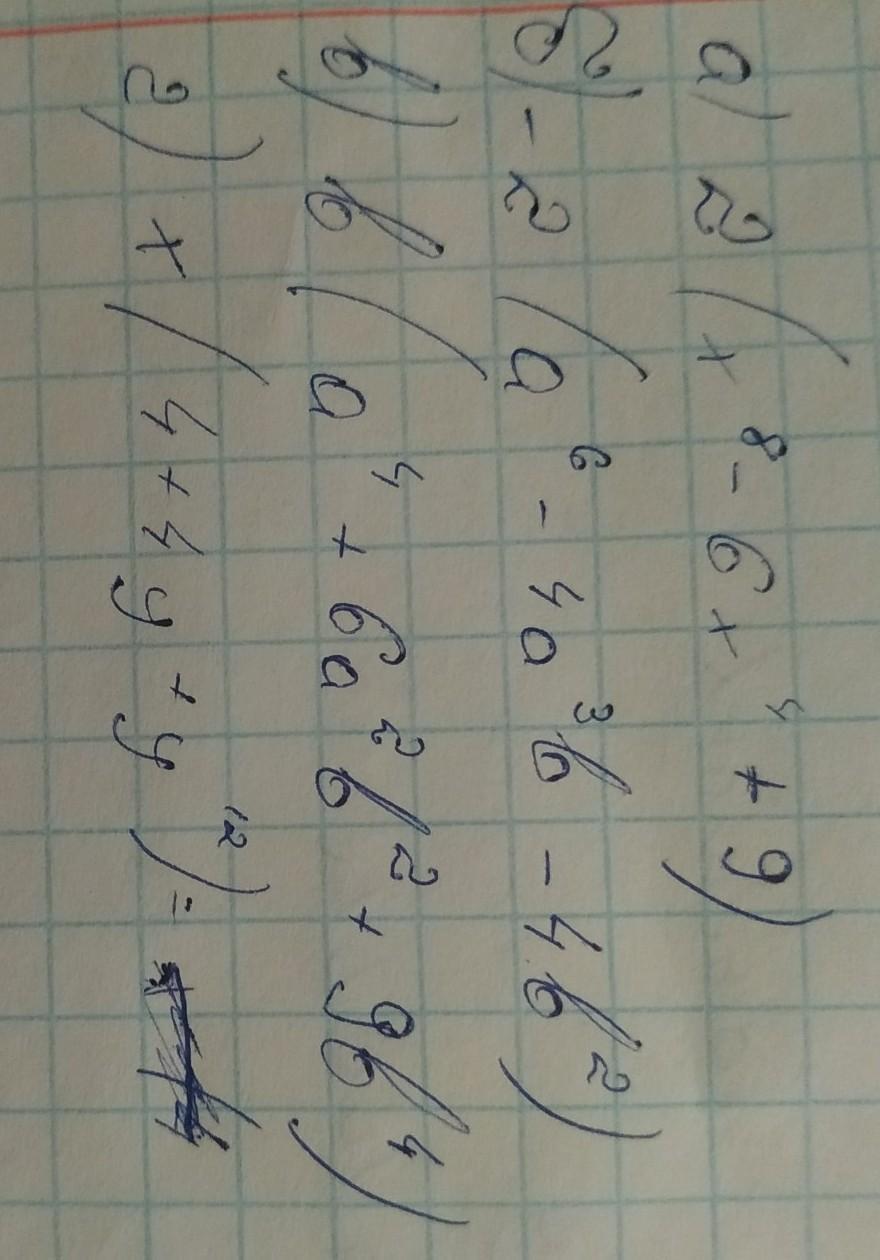 а) 2(x⁸-6x⁴+9)
б) -2(a⁶-4a³b-4b²)
в) b(a⁴+6a²b²+9b⁴)
г) x(4+4y+y²)=